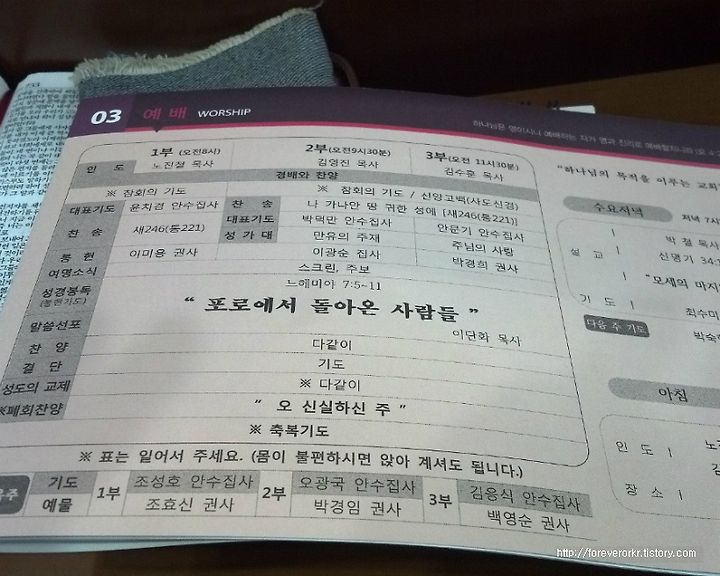 03 예 배 WORSHIP
하나님은 영이시니 예배하는 자가 영과 진리로 예배할지니라 (요 4:
1부 (오전8시) 2부(오전9시30분) 3부(오전 11시30분)
인 도 노진철 목사 김영진 목사 김수훈 목사
경배와 찬양
※ 참회의 기도 ※ 참회의 기도 / 신앙고백(사도신경)
대표기도 윤치경 안수집사 찬 송 나 가나안 땅 귀한 성에 [새246(통221)]
찬 송 새246(통221) 대표기도 박덕만 안수집사 안문기 안수집사
성 가 대 만유의 주재 주님의 사랑
봉 헌 이미용 권사 이광순 집사 박경희 권사
여명소식 스크린, 주보
성경봉독 느헤미야 7:5~11
말씀선포 “ 포로에서 돌아온 사람들 ”
이단화 목사
찬 양 다같이
결 단 기도
성도의 교제 ※ 다같이
※폐회찬양 “ 오 신실하신 주 ”
※ 축복기도
※ 표는 일어서 주세요. (몸이 불편하시면 앉아 계셔도 됩니다.)
기도 1부 조성호 안수집사 2부 오광국 안수집사 3부 김용식 안수집사
예물 조효신 권사 박경임 권사 백영순 권사
“하나님의 목적을 이루는 교회
수요저녁 저녁 7시
박 철 목사
설 교 신명기 34:1
“모세의 마지
기 도 최수미
다음 주 기도 박숙
아침
인 도 노
장 소
http://foreverorkr.tistory.com